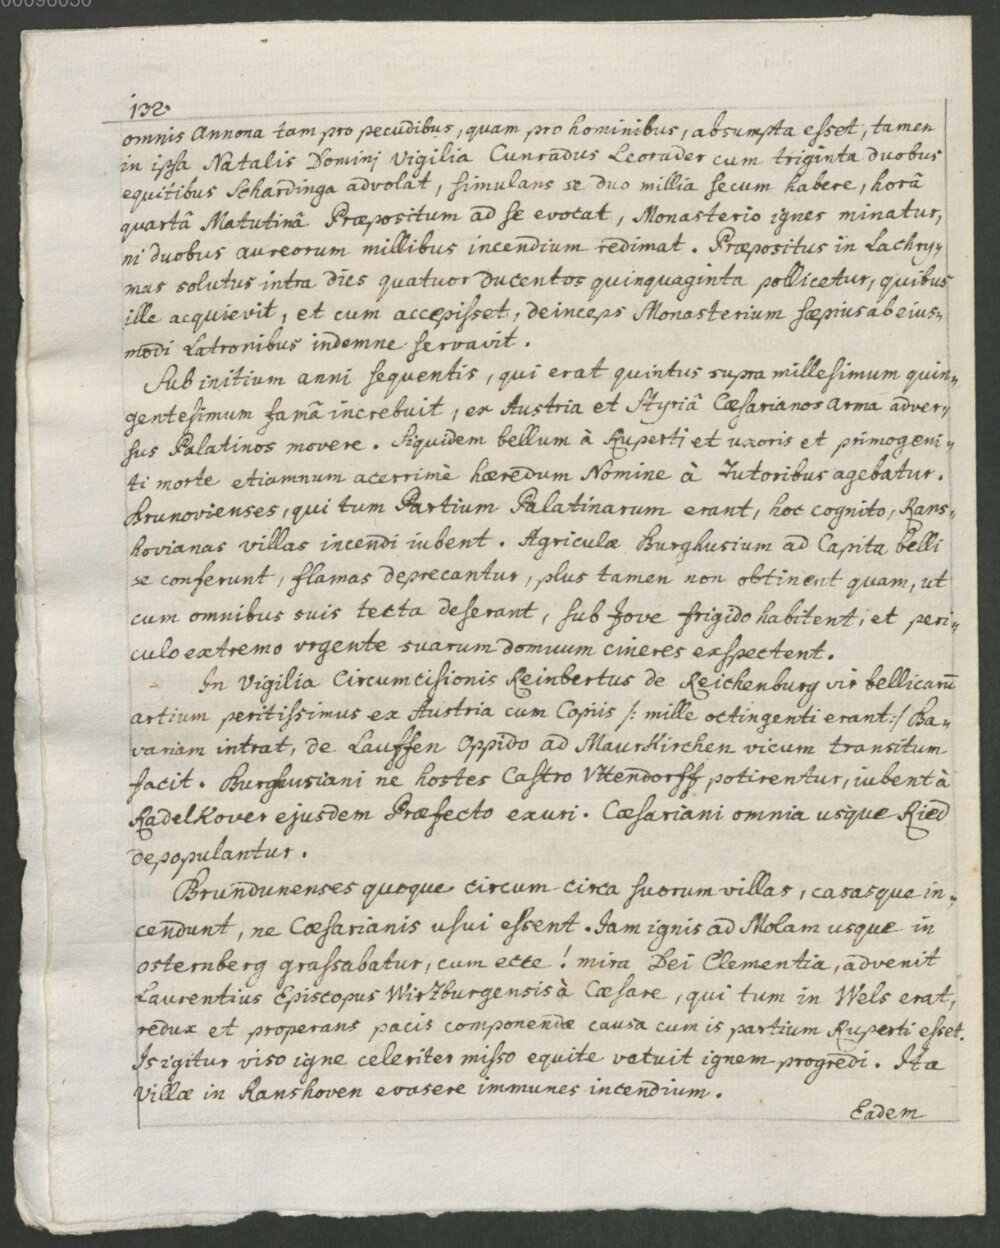 00096030
132
omnis Annona tam pro pecudibus, quam pro hominibus, absumpta esset, tamen
in ipsa Natalis Dominj Vigilia Cunradus Leorader cum triginta duobus
equitibus Schardinga advolat, simulans se duo millia secum habere, horâ
quartâ Matutinâ Præpositum ad se evocat, Monasterio ignes minatur,
ni duobus aureorum millibus incendium redimat. Præpositus in Lachry-
mas solutus intra dies quatuor ducentos quinquaginta pollicetur, quibus
ille acquievit, et cum accepisset, deinceps Monasterium sæpius ab eius-
modi Latronibus indemne servavit.
Sub initium anni sequentis, qui erat quintus supra millesimum quin-
gentesimum famâ increbuit, ex Austria et Styriâ Cæsarianos arma adver-
sus Palatinos movere. Siquidem bellum à Ruperti et uxoris et primogeni-
ti morte etiamnum acerrimè hæredum Nomine à Tutoribus agebatur.
Brunovienses, qui tum Partium Palatinarum erant, hoc cognito, Rans-
hovianas villas incendi iubent. Agriculæ Burghusium ad Capita belli
se conferunt, flamas deprecantur, plus tamen non obtinent quam, ut
cum omnibus suis tecta deserant, sub Jove frigido habitent, et peri-
culo extremo vrgente suarum domuum cineres exspectent.
In Vigilia Circumcisionis Reinbertus de Reichenburg vir bellicarũ
artium peritissimus ex Austria cum Copiis /: mille octingenti erant :/ Ba-
variam intrat, de Lauffen Oppido ad Maurkirchen vicum transitum
facit. Burghusiani ne hostes Castro Vttendorff potirentur, iubent à
Radelkover ejusdem Præfecto exuri. Cæsariani omnia usque Ried
depopulantur.
Brundunenses quoque circum circa suorum villas, casasque in-
cendunt, ne Cæsarianis usui essent. Iam ignis ad Molam usque in
osternberg grassabatur, cum ecce! mira Dei Clementia, advenit
Laurentius Episcopus Wirzburgensis à Cæsare, qui tum in Wels erat,
redux et properans pacis componendæ causa cum is partium Ruperti esset.
Is igitur viso igne celeriter misso equite vatuit ignem progredi. Ita
Villæ in Ranshoven evasere immunes incendium.
Eadem